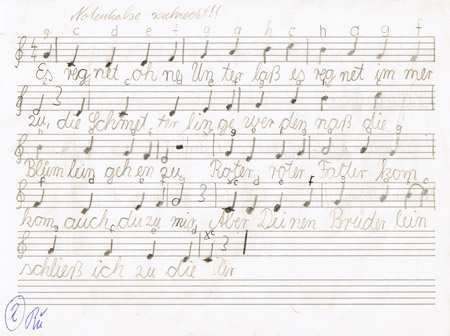 Notenhalse senkrecht!!
g c d e f g a g a h c h a g f
Es reg net oh ne Un ter laß es reg net im mer
zu, die Schmet ter lin ge wer den naß die
Blüm lein geh en zu. Roter, roter Falter kom
kom auch du zu mir. Aber Deinen Brüder lein
schließ ich zu die Tür
2 Rü